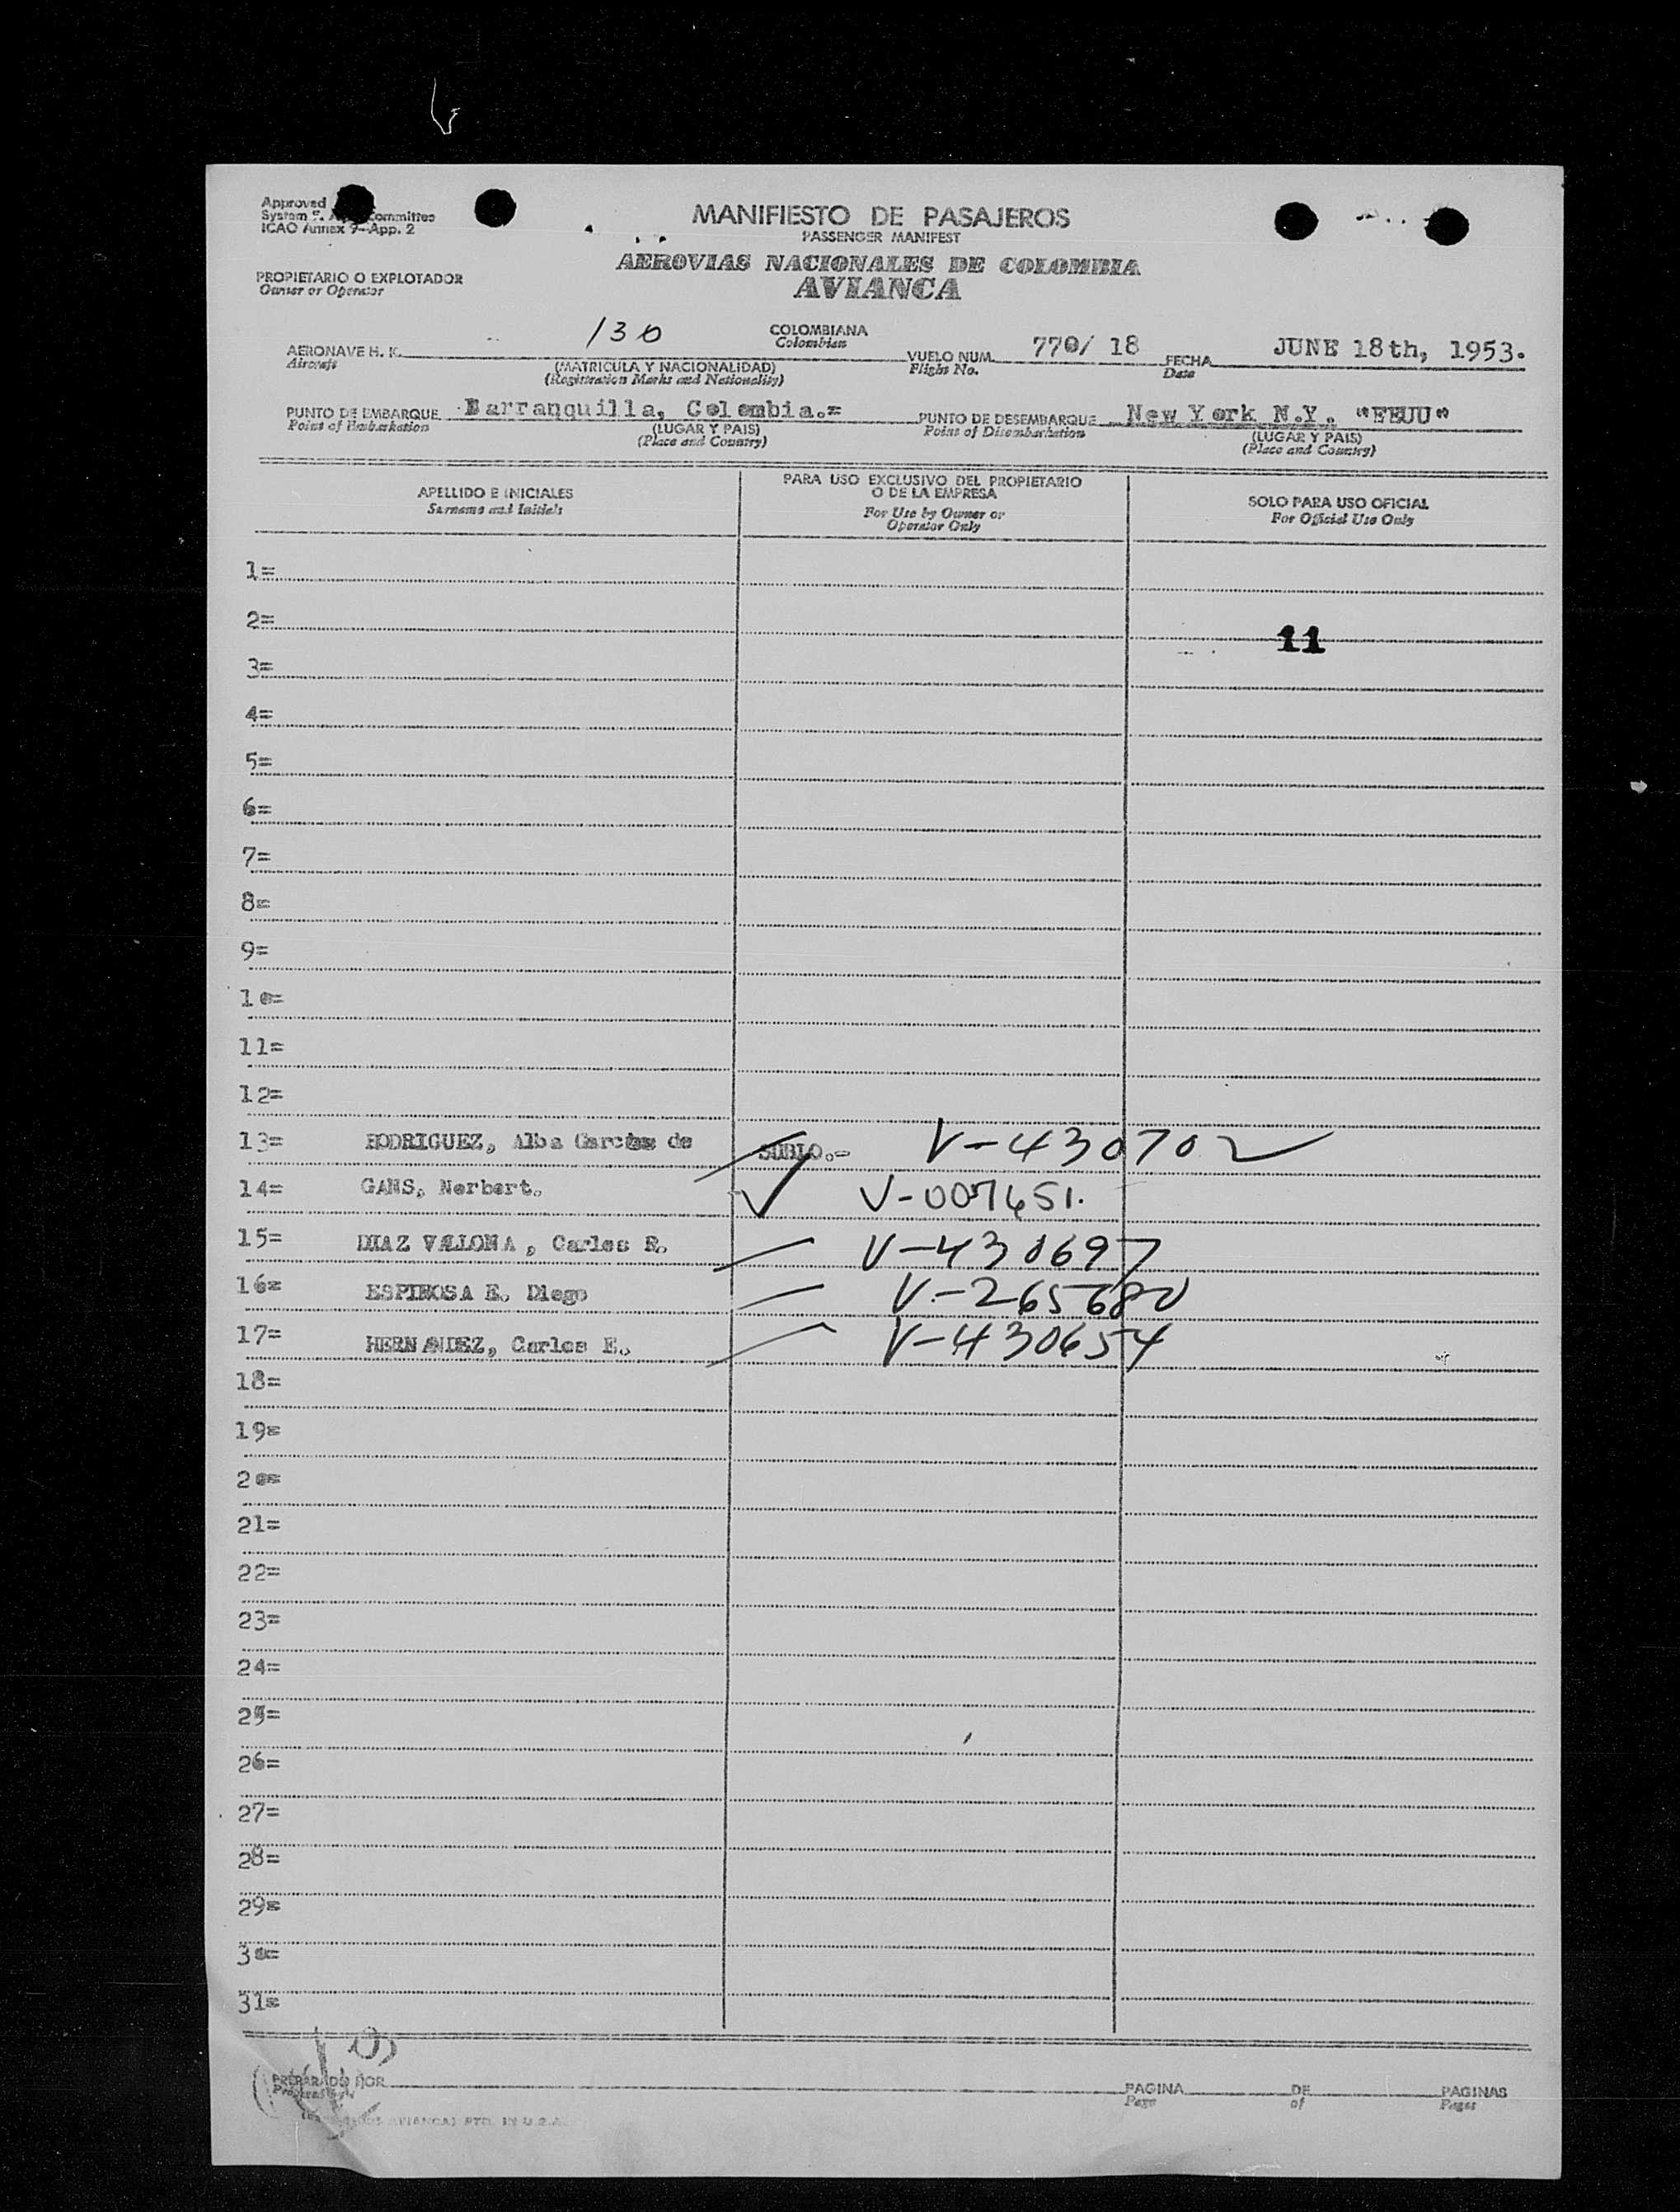 Approved
System
Committee
ICAO Annex 9-App. 2
MANIFIESTO DE PASAJEROS
PASSENGER MANIFEST
AEROVIAS NACIONALES DE COLOMBIA
AVIANCA
PROPIETARIO O EXPLOTADOR
Owner or Operator
AERONAVE H. K. 130 COLOMBIANA
Aircraft Colombian
(MATRICULA Y NACIONALIDAD)
(Registration Marks and Nationality)
VUELO NUM. 770/ 18 FECHA JUNE 18th, 1953.
Flight No. Date
PUNTO DE EMBARQUE Barranquilla, Colombia.=
Point of Embarkation (LUGAR Y PAIS)
(Place and Country)
PUNTO DE DESEMBARQUE New York N.Y. "EEUU"
Point of Disembarkation (LUGAR Y PAIS)
(Place and Country)
APELLIDO E INICIALES
Surname and Initials
PARA USO EXCLUSIVO DEL PROPIETARIO
O DE LA EMPRESA
For Use by Owner or
Operator Only
SOLO PARA USO OFICIAL
For Official Use Only
1=
2= 11
3=
4=
5=
6=
7=
8=
9=
10=
11=
12=
13= RODRIGUEZ, Alba Garces de RUBIO.- V-430702
14= GANS, Norbert. V-007651.
15= DIAZ VALLONA, Carlos R. V-430697
16= ESPINOSA E. Diego V-265680
17= HERNANDEZ, Carlos E. V-430654
18=
19=
20=
21=
22=
23=
24=
25=
26=
27=
28=
29=
30=
31=
PREPARADO POR
Prepared by
PAGINA DE PAGINAS
Page of Pages
AVIANCA) PTD. IN U.S.A.